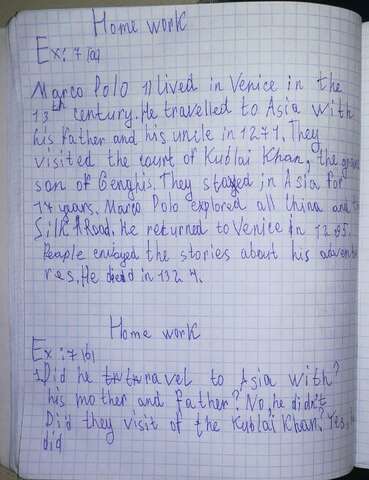 Home work
Ex: 7 (a)
Marco Polo 1) lived in Venice in the
13th century. He travelled to Asia with
his father and his uncle in 1271. They
visited the court of Kublai Khan, the gran
son of Genghis. They stayed in Asia for
years. Marco Polo explored all China and
Silk Road. He returned to Venice in 1295.
People enjoyed the stories about his adventu
res. He died in 1324.
Home work
Ex: 7 (b)
1. Did he travel to Asia with?
his mother and father? No, he didn't
Did they visit of the Kublai Khan. Yes,
did